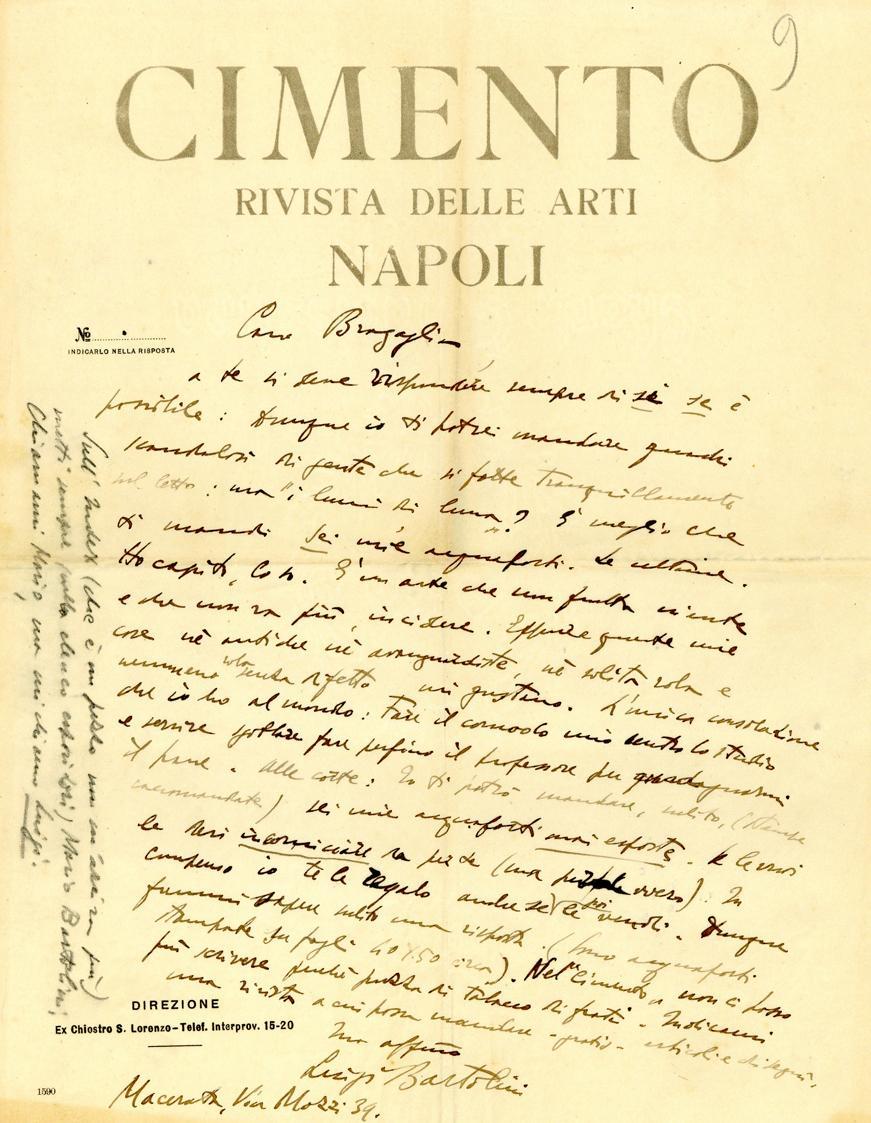 9
CIMENTO
RIVISTA DELLE ARTI
NAPOLI
No
INDICARLO NELLA RISPOSTA
Caro Bragaglia
a te si deve rispondere sempre di sì se è
possibile: dunque io ti potrei mandare quadri
scandalosi di gente che si fotte tranquillamente
nel letto: ma "i lumi di luna"? È meglio che
ti mandi sei mie acqueforti. Le ultime.
Ho capito, lo so. È un'arte che non frutta niente
e che non va più, incidere. Eppure queste mie
cose nè antiche nè avanguardiste, nè solita roba e
nemmeno roba senza difetto mi gustano. L'unica consolazione
che io ho al mondo: fare il comodo mio dentro lo studio
e servire fare perfino il professore per guadagnarmi
il pane. Alle corte: Io ti potrò mandare, subito, (stampe
raccomandate) sei mie acqueforti mai esposte. Se le vuoi
le devi incorniciare da per te (ma per davvero). In
compenso io te le regalo anche se poi le vendi. Dunque
fammi sapere subito una risposta. (Sono acqueforti
stampate su fogli 40 x 50 circa). Nel "Cimento" non ci posso
più scrivere perchè puzza di tabacco di frati. Indicami
una rivista a cui possa mandare - gratis - articoli e disegni.
tuo affmo
Luigi Bartolini
Macerata, Via Mozzi 39.
Sull'Index (che è un pezzo non m'arriva più)
metti sempre (nello elenco espositori) Mario Bartolini,
Chiamami Mario, ma mi chiamo Luigi!
DIREZIONE
Ex Chiostro S. Lorenzo - Telef. Interprov. 15-20
1590